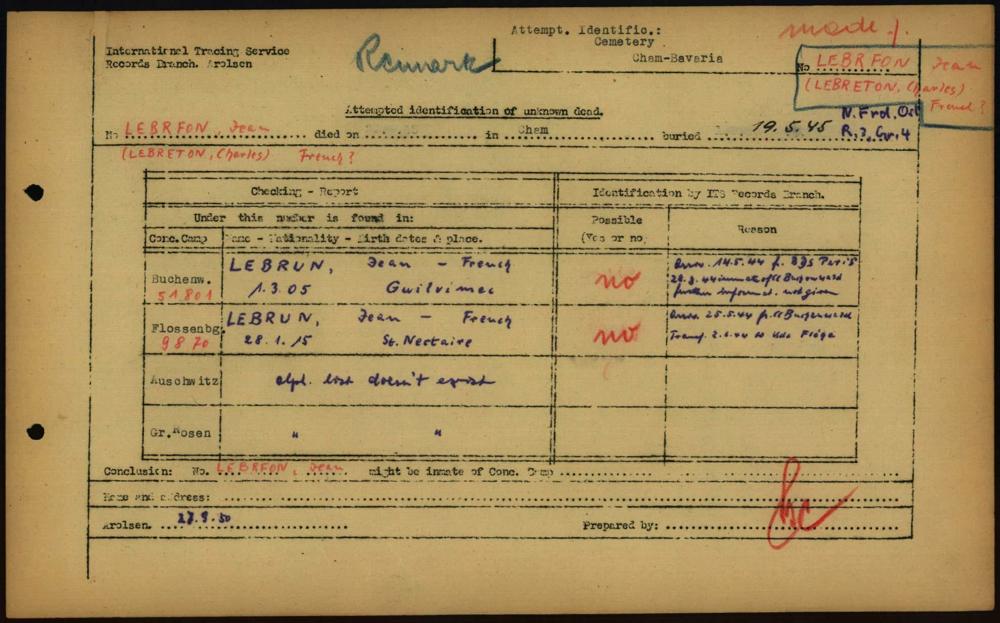 International Tracing Service
Records Branch. Arolsen
Remark
Attempt. Identific.:
Cemetery
Cham-Bavaria
made !
No LEBRFON Jean
(LEBRETON, Charles)
French ?
Attempted identification of unknown dead.
N.Frd. Ost
R.3. Gr.4
No LEBRFON, Jean died on in Cham buried 19.5.45
(LEBRETON, Charles) French ?
Checking - Report
Identification by ITS Records Branch.
Under this number is found in:
Possible
(Yes or no)
Reason
Conc.Camp
Name - Nationality - Birth dates & place.
Buchenw.
51801
LEBRUN, Jean - French
1.3.05 Guilvimec
no
14.5.44 f. Bds Paris
further informat. not given
Flossenbg.
9870
LEBRUN, Jean - French
28.1.15 St. Nectaire
no
25.5.44 fr.
Auschwitz
alph. list doesn't exist
Gr.Rosen
" "
Conclusion: No. LEBRFON, Jean might be inmate of Conc. Camp
Name and address:
Arolsen. 27.9.50
Prepared by: